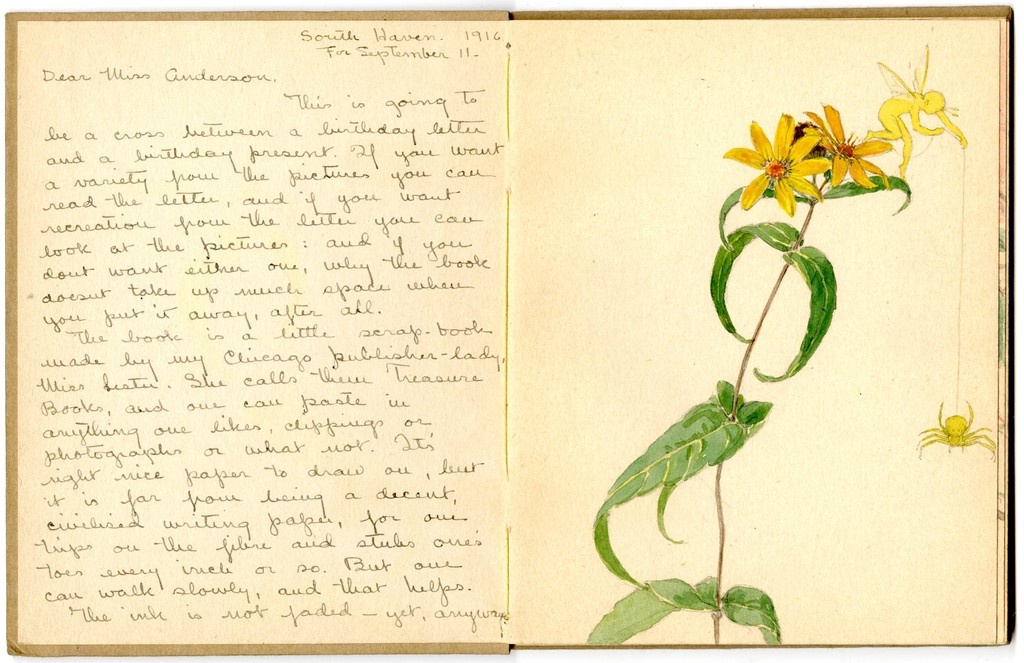 South Haven. 1916
For September 11.
Dear Miss Anderson,
This is going to
be a cross between a birthday letter
and a birthday present. If you want
a variety from the pictures you can
read the letter, and if you want
recreation from the letter you can
look at the pictures: and if you
dont want either one, why the book
doesnt take up much space when
you put it away, after all.
The book is a little scrap-book
made by my Chicago publisher-lady,
Miss Lester. She calls them Treasure
Books, and one can paste in
anything one likes, clippings or
photographs or what not. Its
right nice paper to draw on, but
it is far from being a decent,
civilised writing paper, for one
trips on the fibre and stubs one's
toes every inch or so. But one
can walk slowly, and that helps.
The ink is not faded - yet, anyway